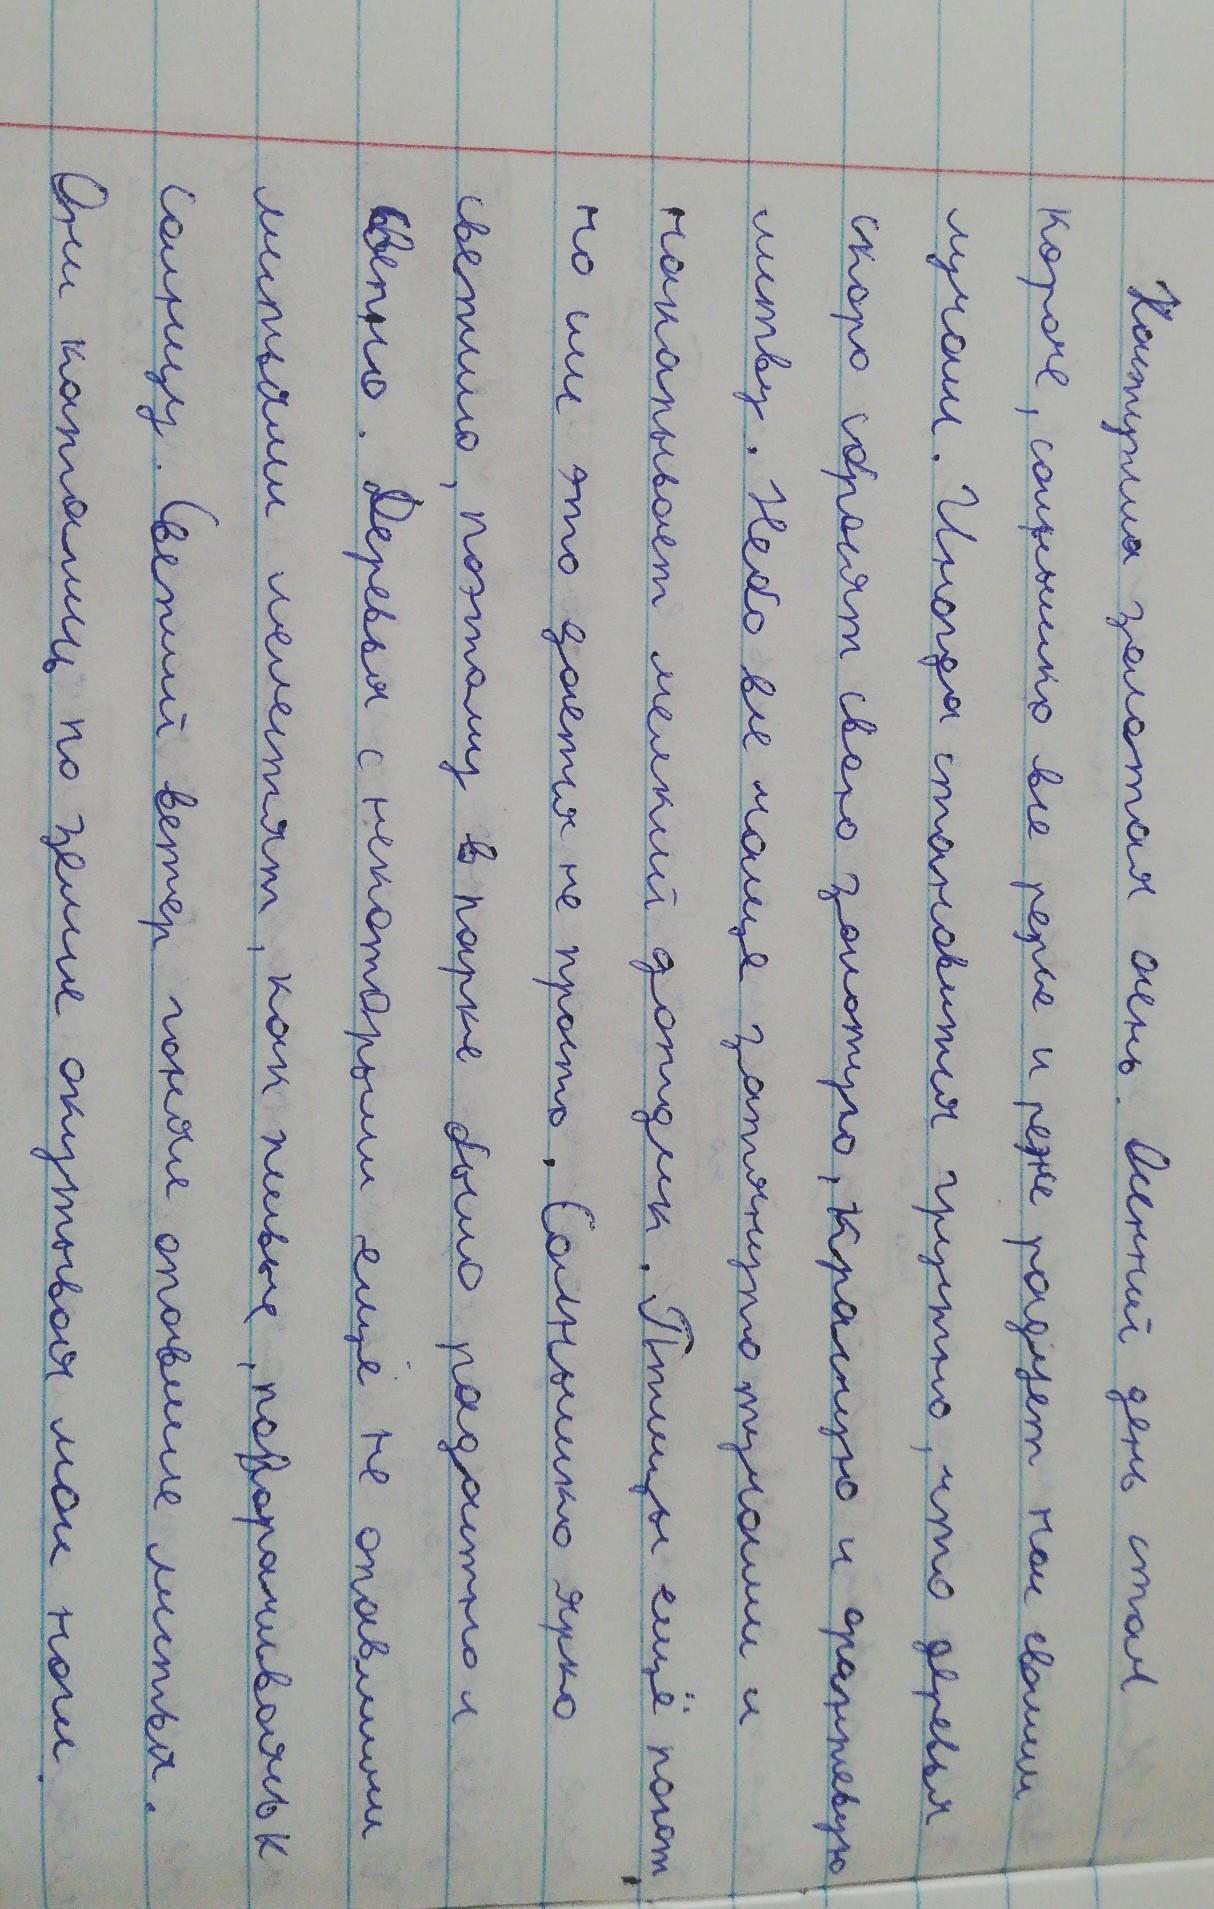 Наступила золотая осень. Осенний день стал
короче, солнышко все реже и реже радует нас своими
лучами. Иногда становится грустно, что деревья
скоро сбросят свою золотую, красную и оранжевую
листву. Небо все чаще затянуто тучами и
накрапывает мелкий дождик. Птицы ещё поют,
но им это дается не просто. Солнышко ярко
светило, поэтому в парке было радостно и
светло. Деревья с некоторыми ещё не опавшими
листьями шелестят, как живые, поворачиваясь к
солнцу. Светлий ветер гоняе опавшие листья.
Они катались по земле окутывая мои ноги.